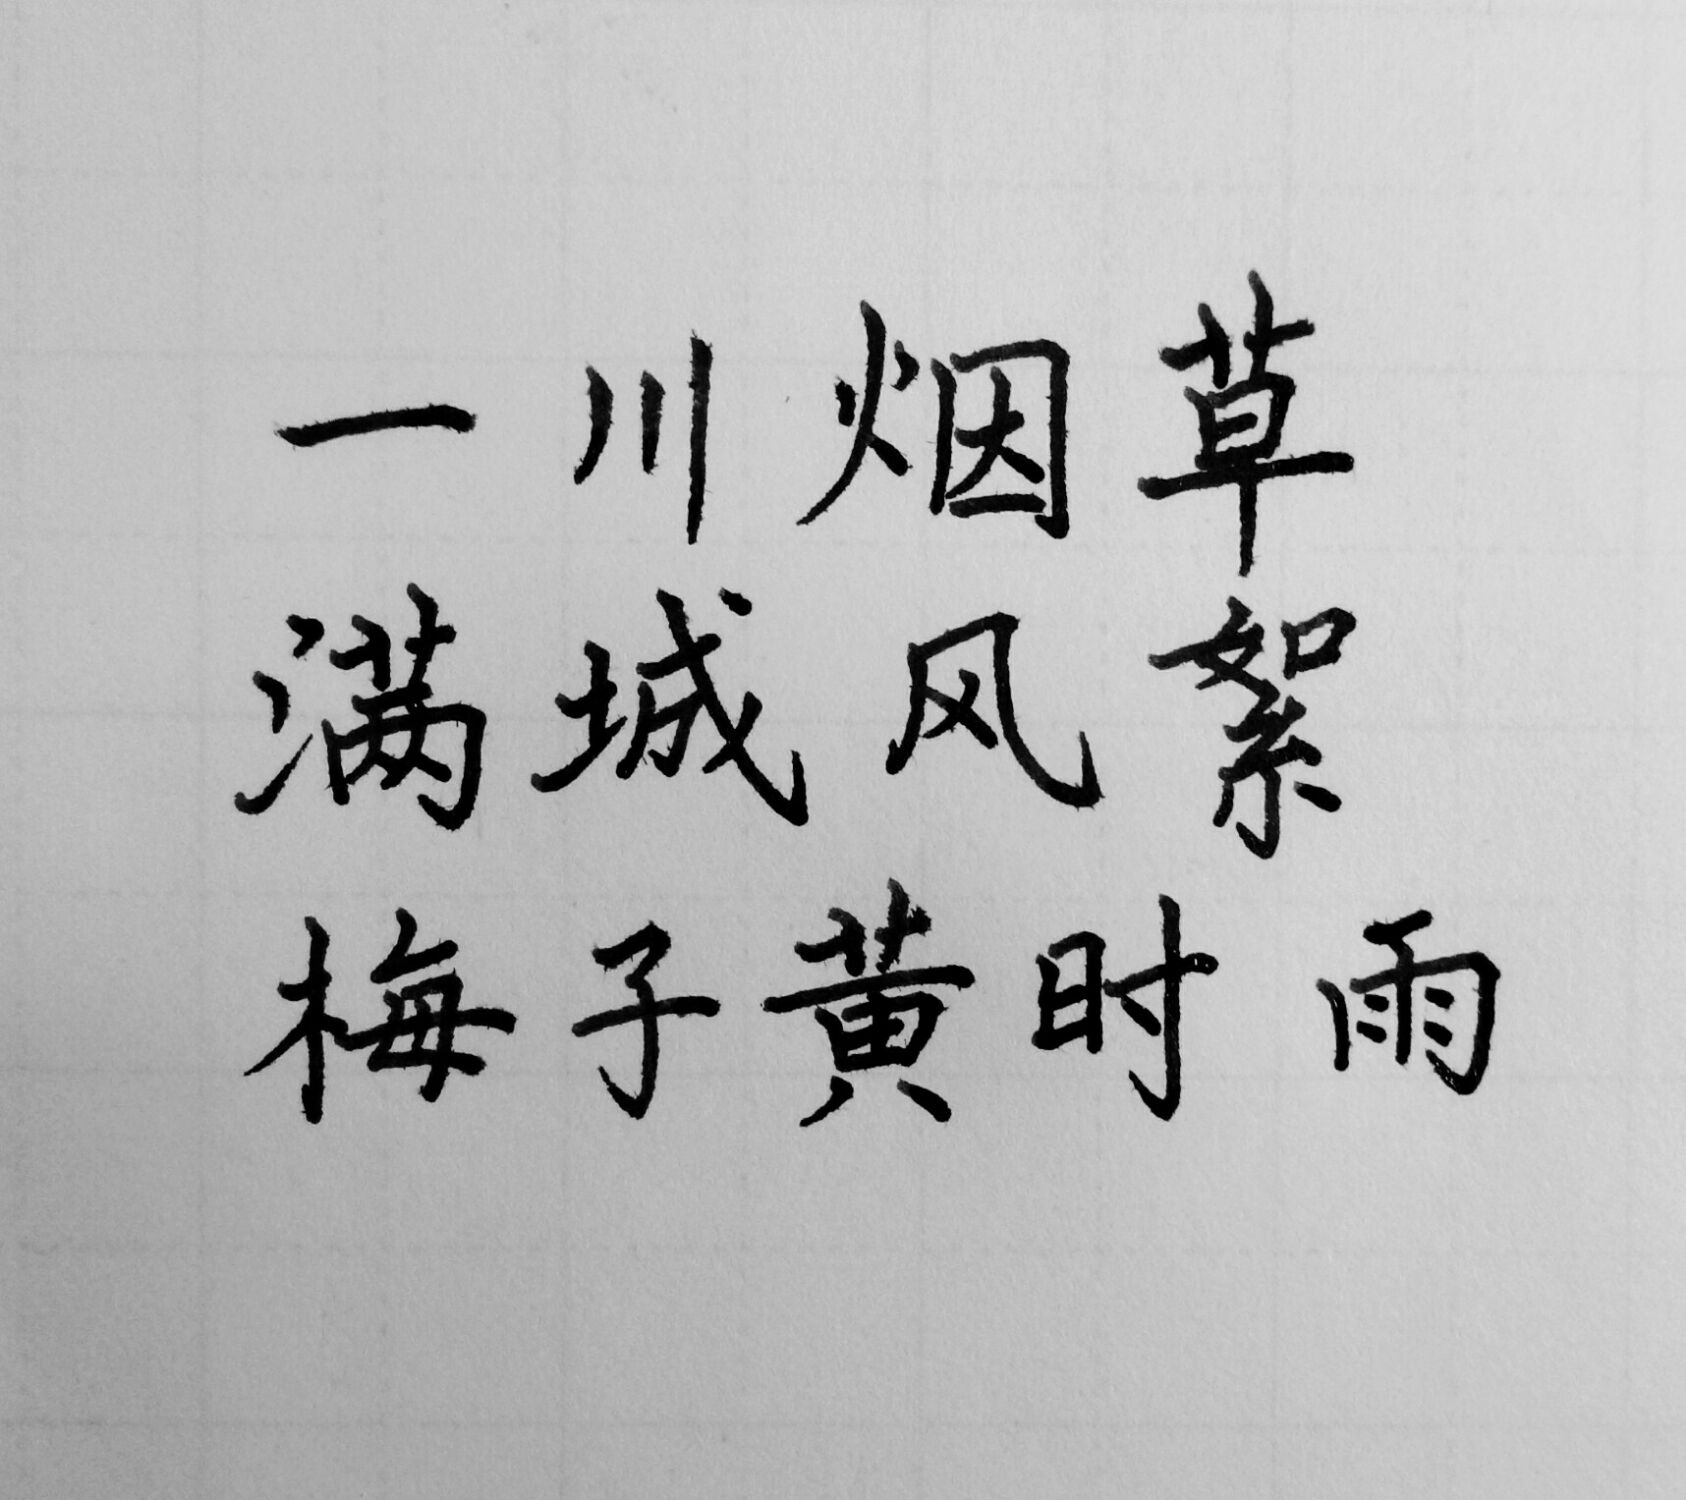 一川烟草
满城风絮
梅子黄时雨